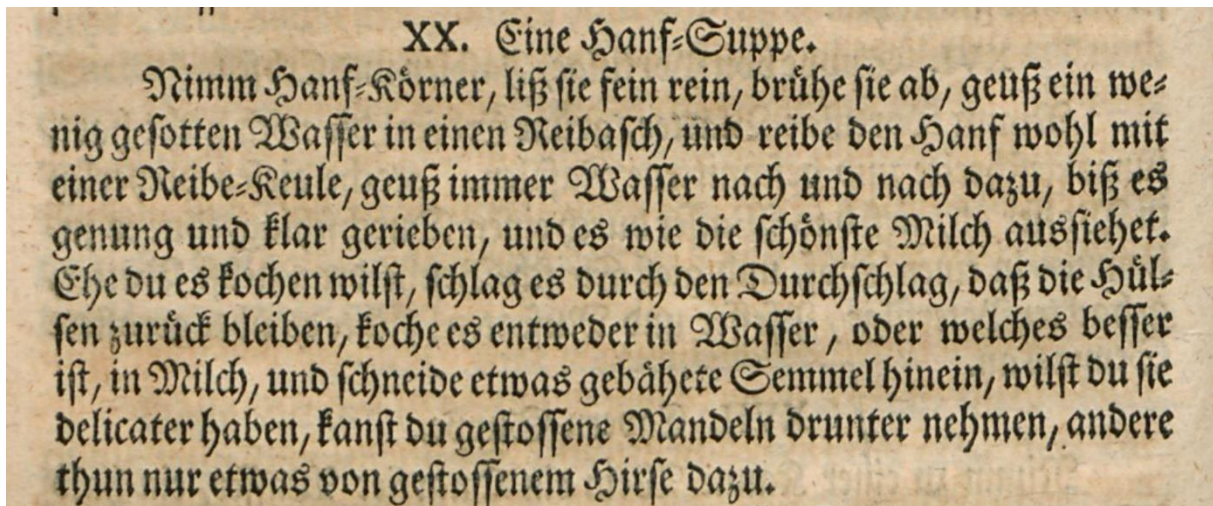 XX. Eine Hanf-Suppe.
Nimm Hanf-Körner, liß sie fein rein, brühe sie ab, geuß ein we-
nig gesotten Wasser in einen Reibasch, und reibe den Hanf wohl mit
einer Reibe-Keule, geuß immer Wasser nach und nach dazu, biß es
genung und klar gerieben, und es wie die schönste Milch aussiehet.
Ehe du es kochen wilst, schlag es durch den Durchschlag, daß die Hül-
sen zurück bleiben, koche es entweder in Wasser, oder welches besser
ist, in Milch, und schneide etwas gebähete Semmel hinein, wilst du sie
delicater haben, kanst du gestossene Mandeln drunter nehmen, andere
thun nur etwas von gestossenem Hirse dazu.